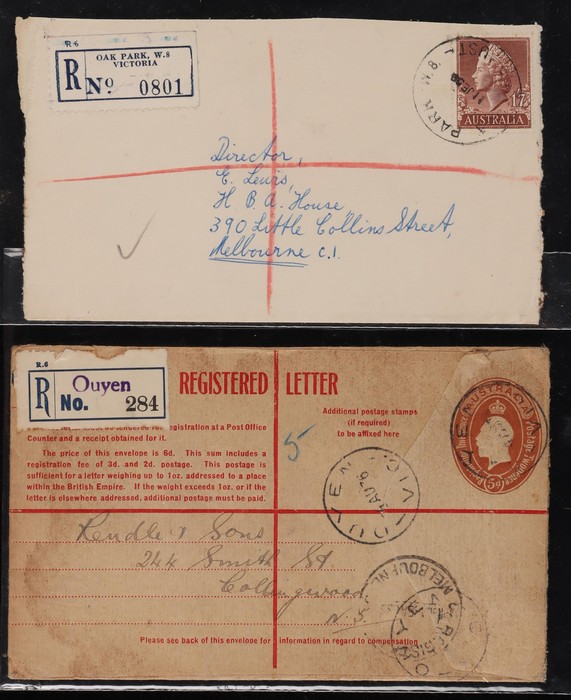 R6
OAK PARK, W.8
VICTORIA
R No 0801
PARK W.8.
11 JE 58
1/7
AUSTRALIA
Director,
E. Lewis,
H B A. House,
390 Little Collins Street,
Melbourne C.1.
R.6
R Ouyen
No. 284
REGISTERED LETTER
Additional postage stamps
(if required)
to be affixed here
registration at a Post Office
Counter and a receipt obtained for it.
The price of this envelope is 6d. This sum includes a
registration fee of 3d. and 2d. postage. This postage is
sufficient for a letter weighing up to 1oz. addressed to a place
within the British Empire. If the weight exceeds 1oz. or if the
letter is elsewhere addressed, additional postage must be paid.
5
OUYEN VIC
AUSTRALIA
Postage Twopence
Rendle & Sons
244 Smith St.
Collingwood
MELBOURNE
Please see back of this envelope for information in regard to compensation